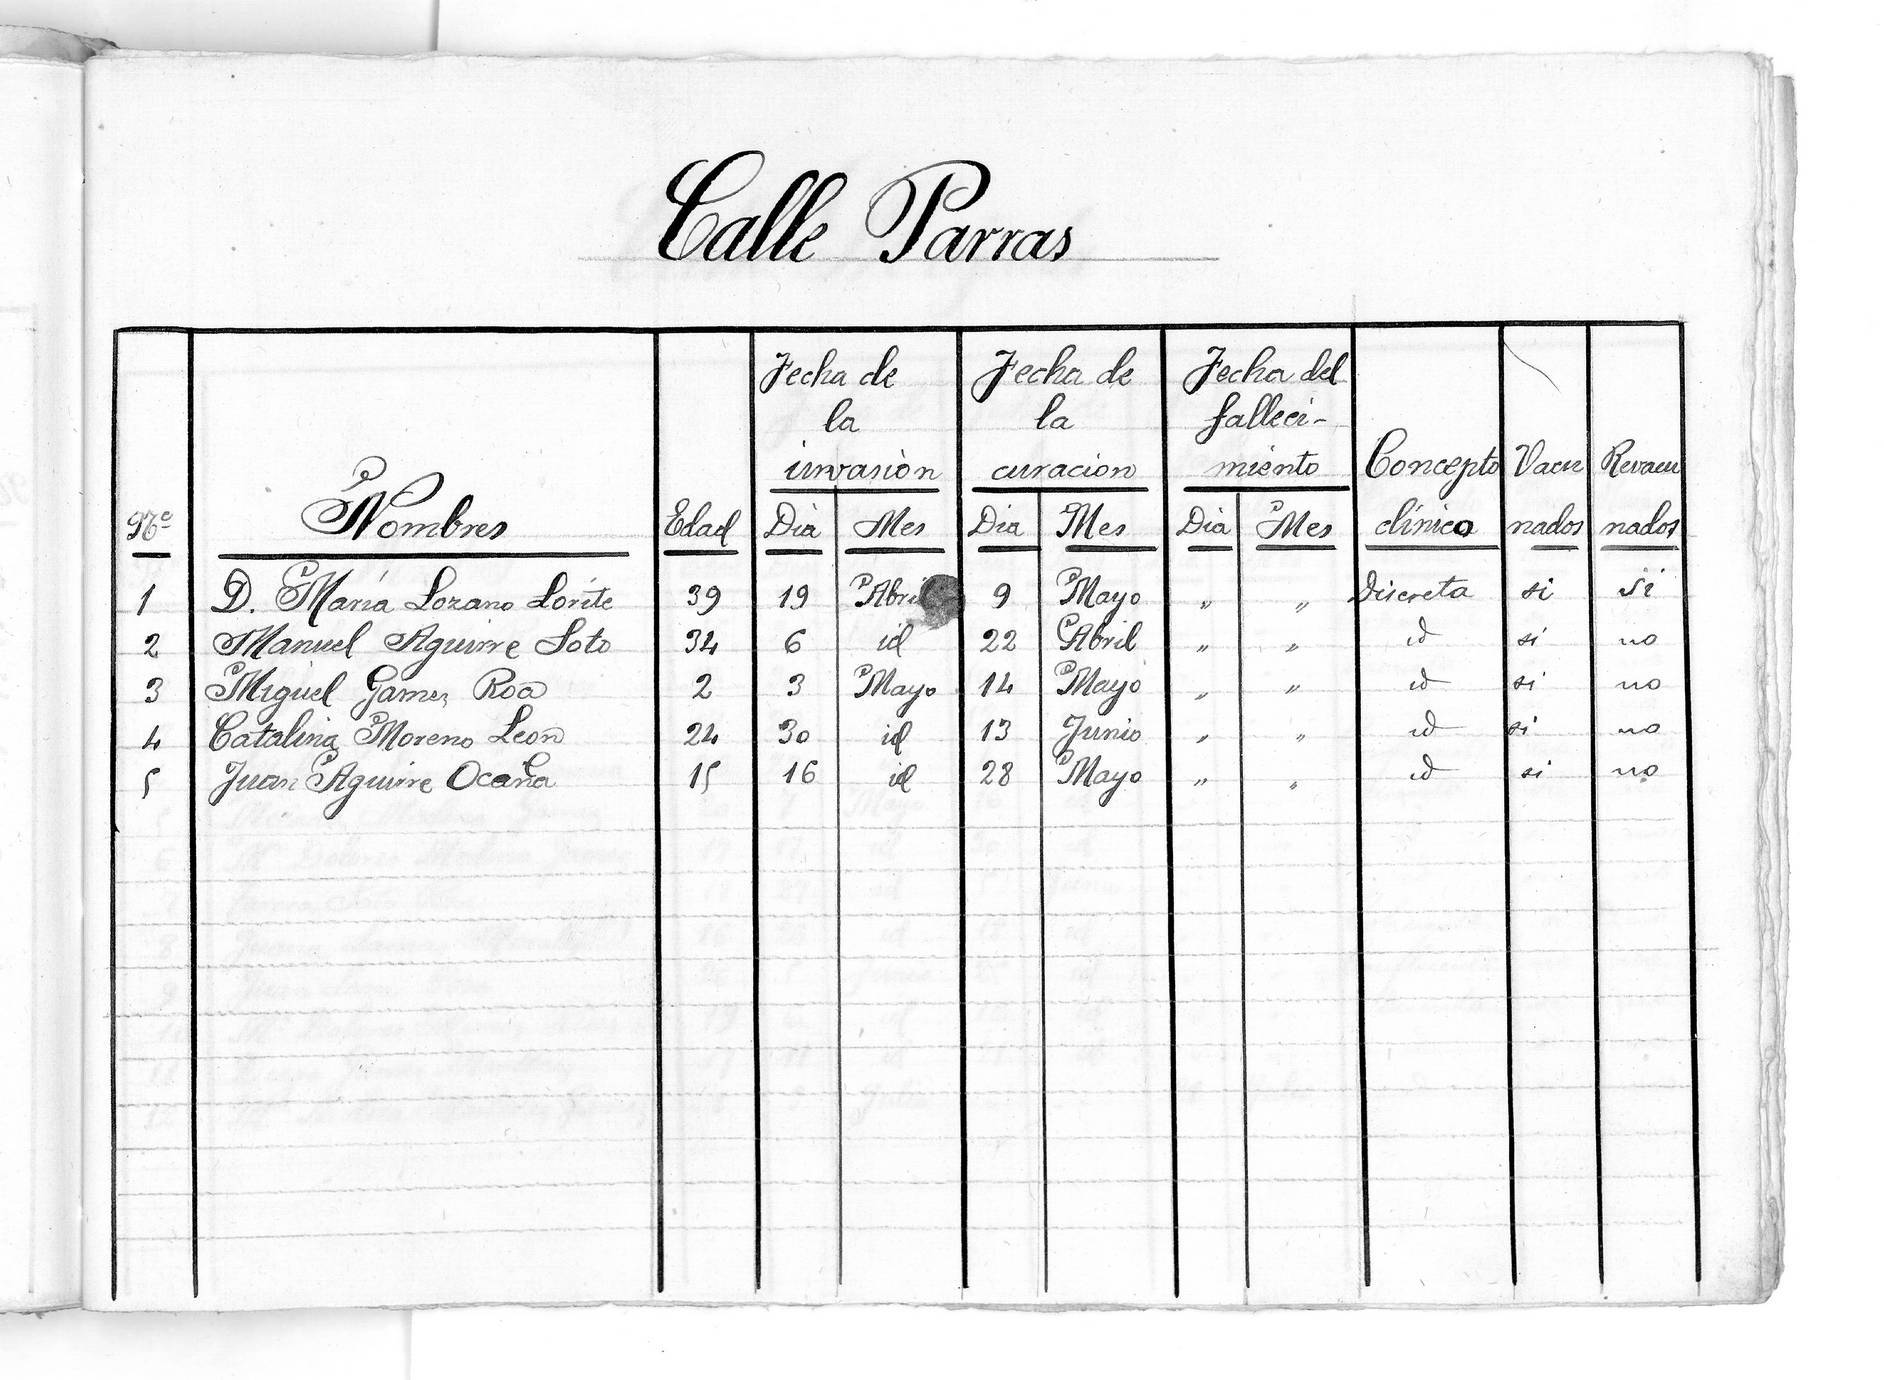 Calle Parras
Nº Nombres Edad Fecha de la invasión Fecha de la curacion Fecha del falleci-miento Concepto clínico Vacunados Revacunados
Dia Mes Dia Mes Dia Mes
1 D. María Lozano Lorite 39 19 Abril 9 Mayo " " Discreta si si
2 Manuel Aguirre Soto 34 6 id 22 Abril " " id si no
3 Miguel Gamez Roa 2 3 Mayo 14 Mayo " " id si no
4 Catalina Moreno Leon 24 30 id 13 Junio " " id si no
5 Juan Aguirre Ocaña 15 16 id 28 Mayo " " id si no